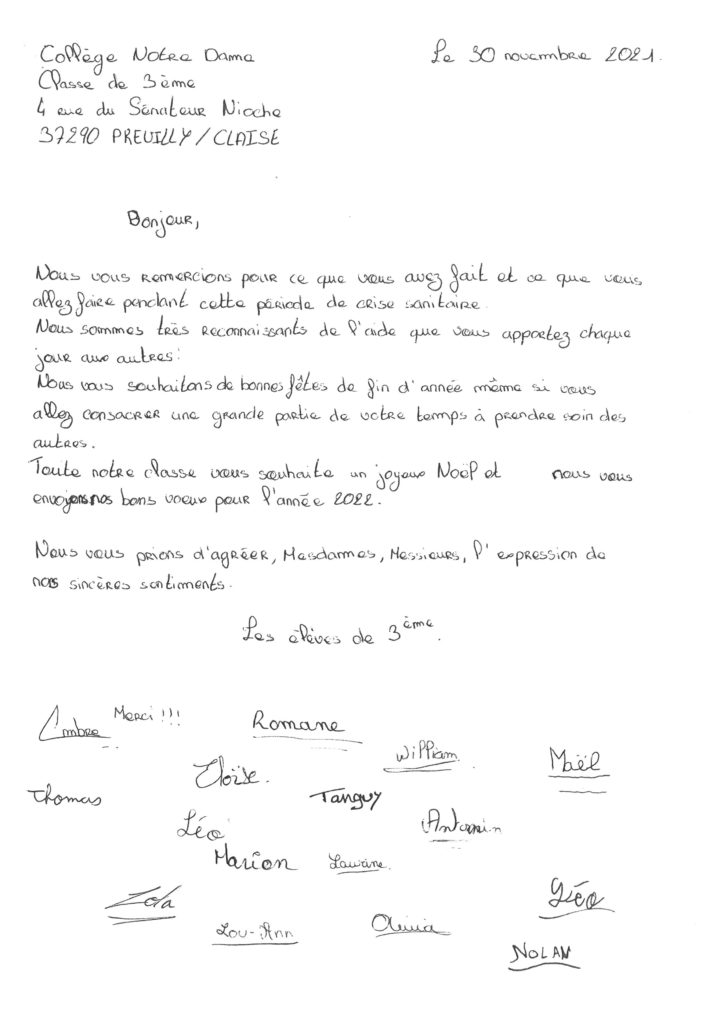 Collège Notre Dame
Le 30 novembre 2021.
Classe de 3ème
4 rue du Sénateur Nioche
37290 PREUILLY/CLAISE
Bonjour,
Nous vous remercions pour ce que vous avez fait et ce que vous
allez faire pendant cette période de crise sanitaire.
Nous sommes très reconnaissants de l'aide que vous apportez chaque
jour aux autres.
Nous vous souhaitons de bonnes fêtes de fin d'année même si vous
allez consacrer une grande partie de votre temps à prendre soin des
autres.
Toute notre classe vous souhaite un joyeux Noël et nous vous
envoyons nos bons voeux pour l'année 2022.
Nous vous prions d'agréer, Mesdames, Messieurs, l'expression de
nos sincères sentiments.
Les élèves de 3ème.
Ambre Merci !!! Romane
William Maël
Eloïse.
Thomas Tanguy
Léo Antonin
Marion Laurine
Lola Géo
Lou-Ann Olivia
NOLAN